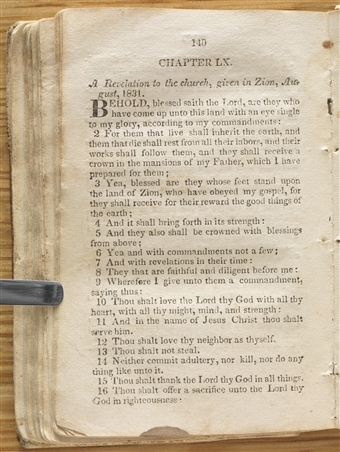 140
CHAPTER LX.
A Revelation to the church, given in Zion, Au-
gust, 1831.
BEHOLD, blessed saith the Lord, are they who
have come up unto this land with an eye single
to my glory, according to my commandments:
2 For them that live shall inherit the earth, and
them that die shall rest from all their labors, and their
works shall follow them, and they shall receive a
crown in the mansions of my Father, which I have
prepared for them;
3 Yea, blessed are they whose feet stand upon
the land of Zion, who have obeyed my gospel, for
they shall receive for their reward the good things of
the earth;
4 And it shall bring forth in its strength:
5 And they also shall be crowned with blessings
from above;
6 Yea and with commandments not a few;
7 And with revelations in their time:
8 They that are faithful and diligent before me:
9 Wherefore I give unto them a commandment,
saying thus:
10 Thou shalt love the Lord thy God with all thy
heart, with all thy might, mind, and strength:
11 And in the name of Jesus Christ thou shalt
serve him.
12 Thou shalt love thy neighbor as thyself.
13 Thou shalt not steal.
14 Neither commit adultery, nor kill, nor do any
thing like unto it.
15 Thou shalt thank the Lord thy God in all things.
16 Thou shalt offer a sacrifice unto the Lord thy
God in righteousness: